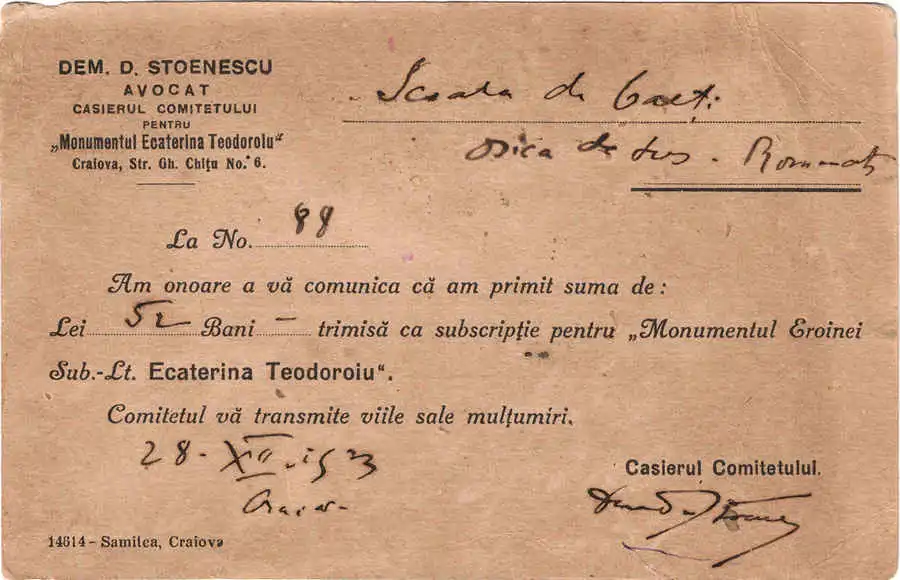 DEM. D. STOENESCU
AVOCAT
CASIERUL COMITETULUI
PENTRU
„Monumentul Ecaterina Teodoroiu“
Craiova, Str. Gh. Chițu No. 6.
Scoala de baeți
Osica de sus - Romanați
La No. 88
Am onoare a vă comunica că am primit suma de :
Lei 52 Bani — trimisă ca subscripție pentru „Monumentul Eroinei
Sub.-Lt. Ecaterina Teodoroiu“.
Comitetul vă transmite viile sale mulțumiri.
28-XII-923
Casierul Comitetului.
14614 – Samitca, Craiova